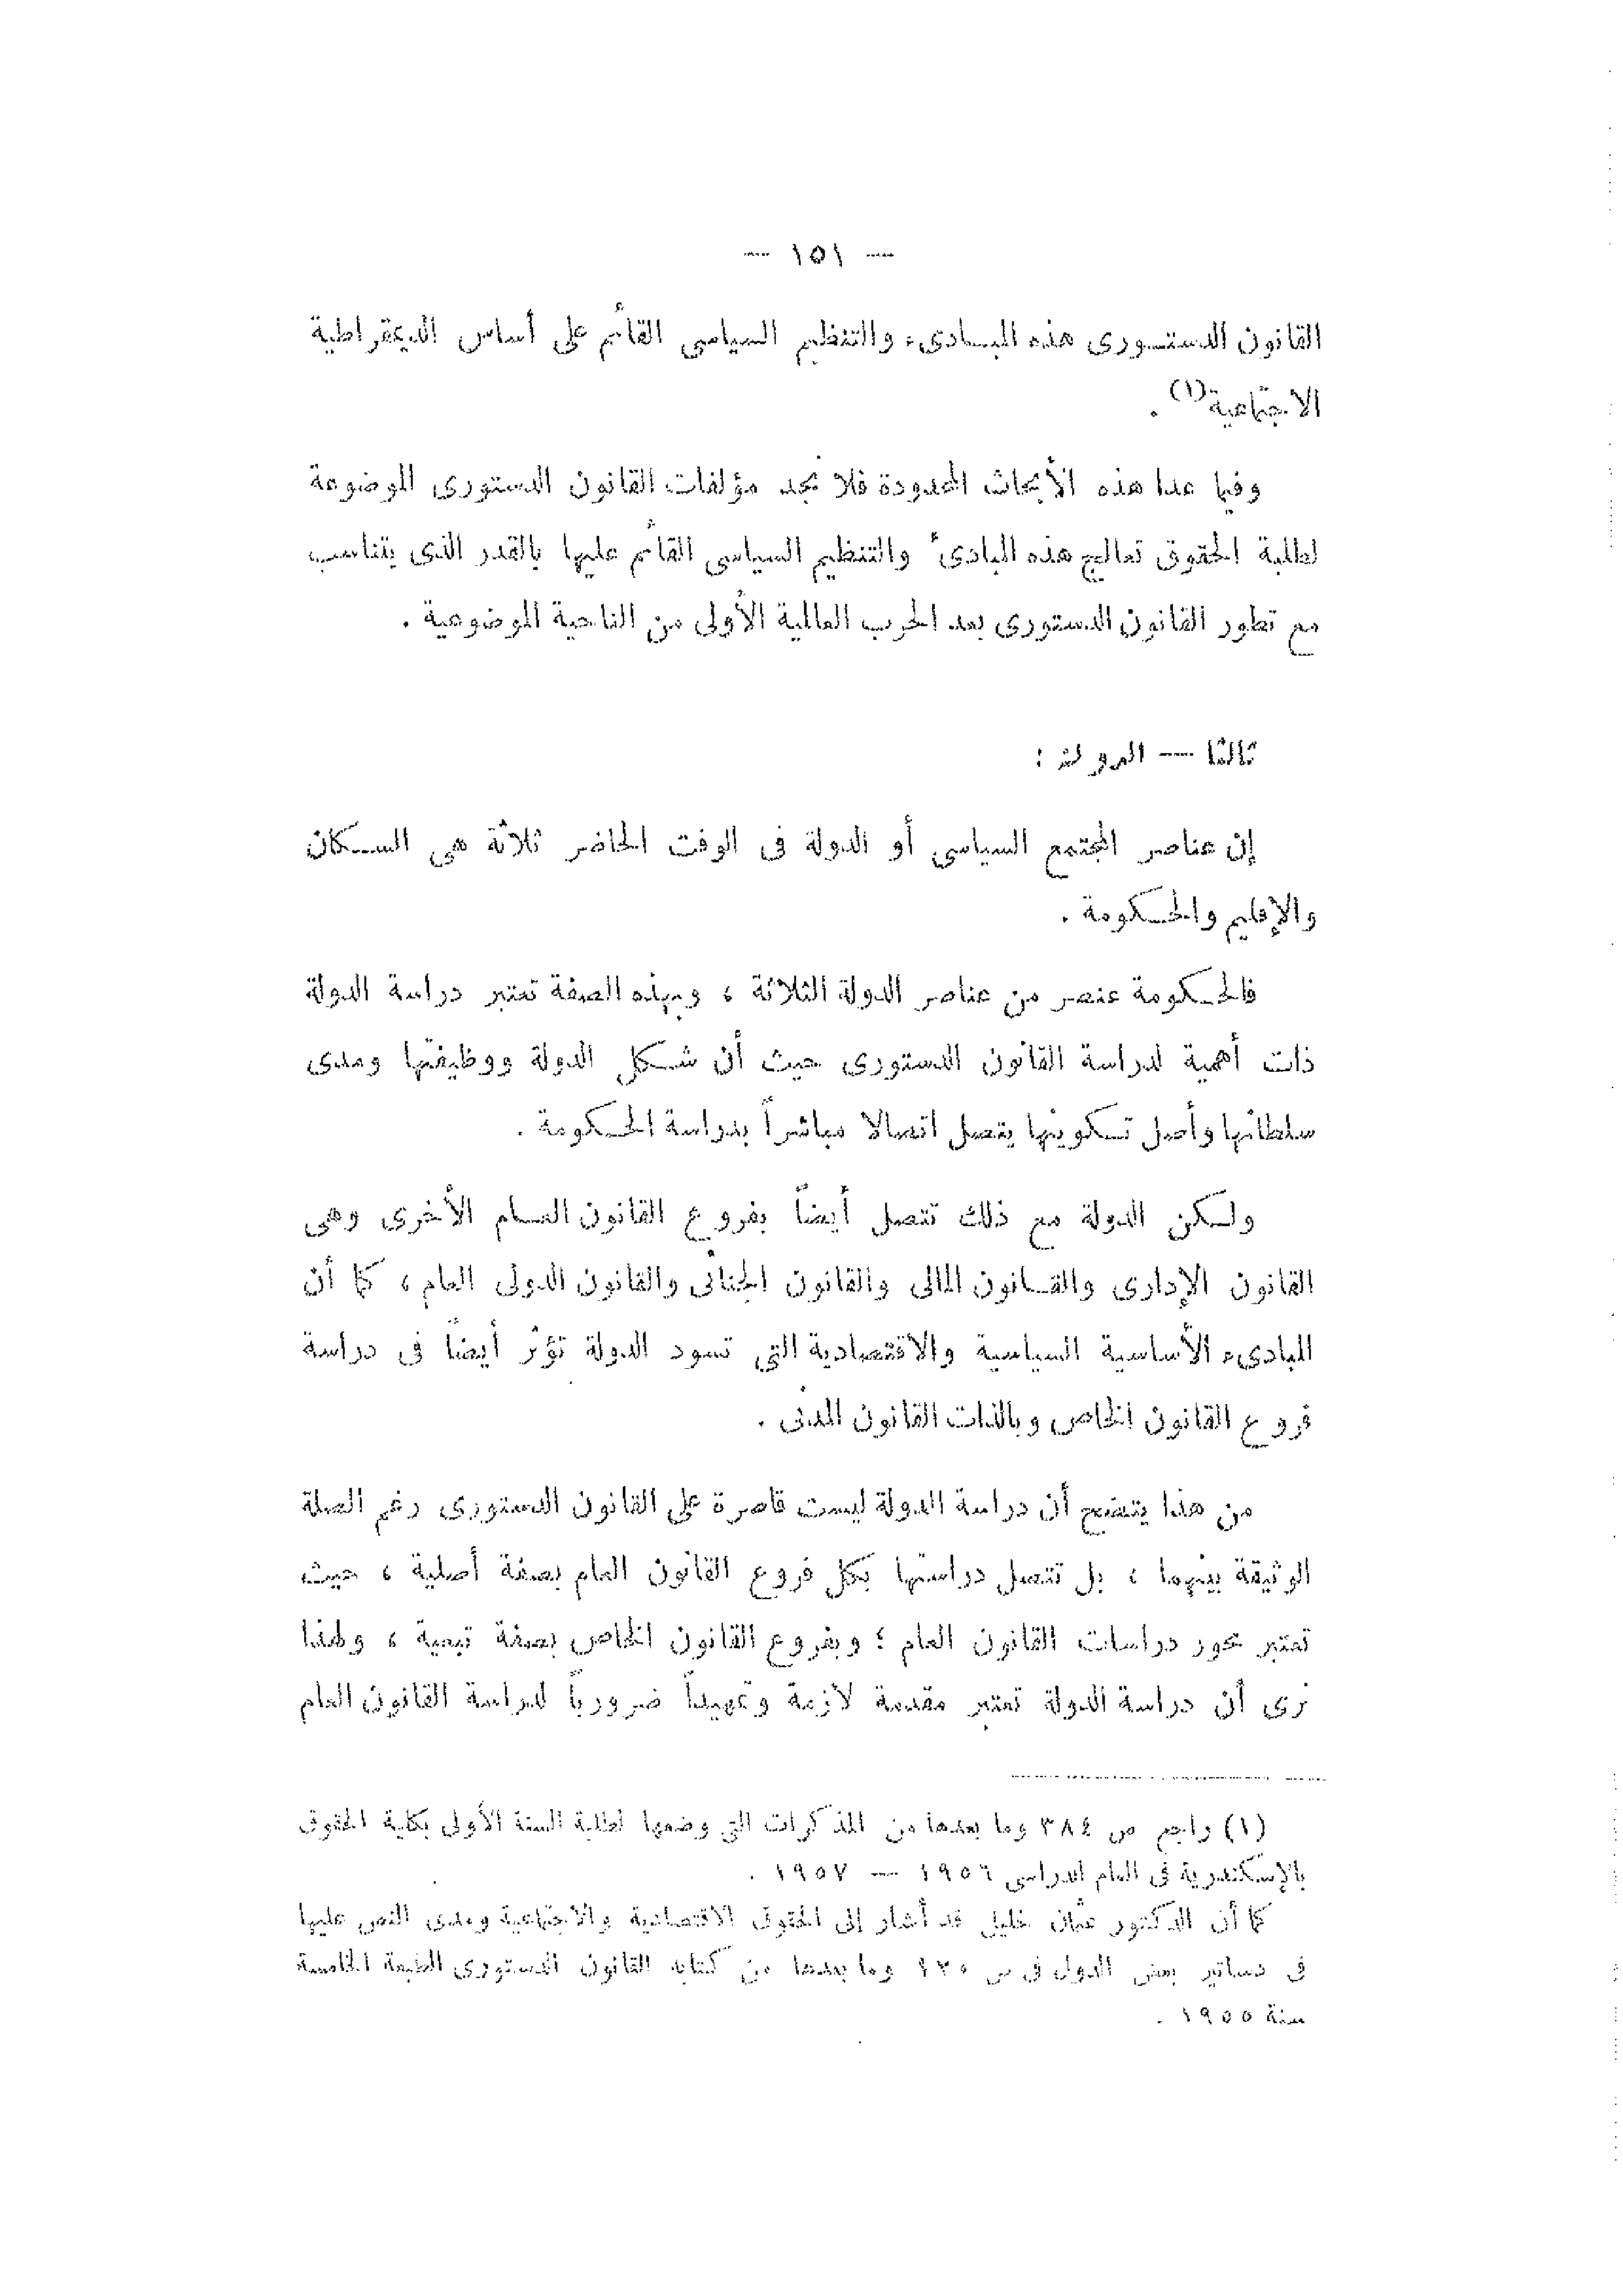 — ١٥١ —
القانون الدستورى هذه المبادىء والتنظيم السياسى القائم على أساس الديمقراطية
الاجتماعية(١) .
وفيما عدا هذه الأبحاث المحدودة فلا نجد مؤلفات القانون الدستورى الموضوعة
لطلبة الحقوق تعالج هذه المبادئ والتنظيم السياسى القائم عليها بالقدر الذى يتناسب
مع تطور القانون الدستورى بعد الحرب العالمية الأولى من الناحية الموضوعية .
ثالثا — الدولة :
إن عناصر المجتمع السياسى أو الدولة فى الوقت الحاضر ثلاثة هى السكان
والإقليم والحكومة .
فالحكومة عنصر من عناصر الدولة الثلاثة ، وبهذه الصفة تعتبر دراسة الدولة
ذات أهمية لدراسة القانون الدستورى حيث أن شكل الدولة ووظيفتها ومدى
سلطاتها وأصل تكوينها يتصل اتصالا مباشراً بدراسة الحكومة .
ولكن الدولة مع ذلك تتصل أيضاً بفروع القانون العام الأخرى وهى
القانون الإدارى والقانون المالى والقانون الجنائى والقانون الدولى العام ، كما أن
المبادىء الأساسية السياسية والاقتصادية التى تسود الدولة تؤثر أيضاً فى دراسة
فروع القانون الخاص وبالذات القانون المدنى .
من هذا يتضح أن دراسة الدولة ليست قاصرة على القانون الدستورى رغم الصلة
الوثيقة بينهما ، بل تتصل دراستها بكل فروع القانون العام بصفة أصلية ، حيث
تعتبر محور دراسات القانون العام ؛ وبفروع القانون الخاص بصفة تبعية ، ولهذا
نرى أن دراسة الدولة تعتبر مقدمة لازمة وتمهيداً ضرورياً لدراسة القانون العام
(١) راجع ص ٣٨٤ وما بعدها من المذكرات التى وضعها لطلبة السنة الأولى بكلية الحقوق
بالإسكندرية فى العام الدراسى ١٩٥٦ — ١٩٥٧ .
كما أن الدكتور عثمان خليل قد أشار إلى الحقوق الاقتصادية والاجتماعية ومدى النص عليها
فى دساتير بعض الدول فى ص وما بعدها من كتابه القانون الدستورى الطبعة الخامسة
سنة ١٩٥٥ .